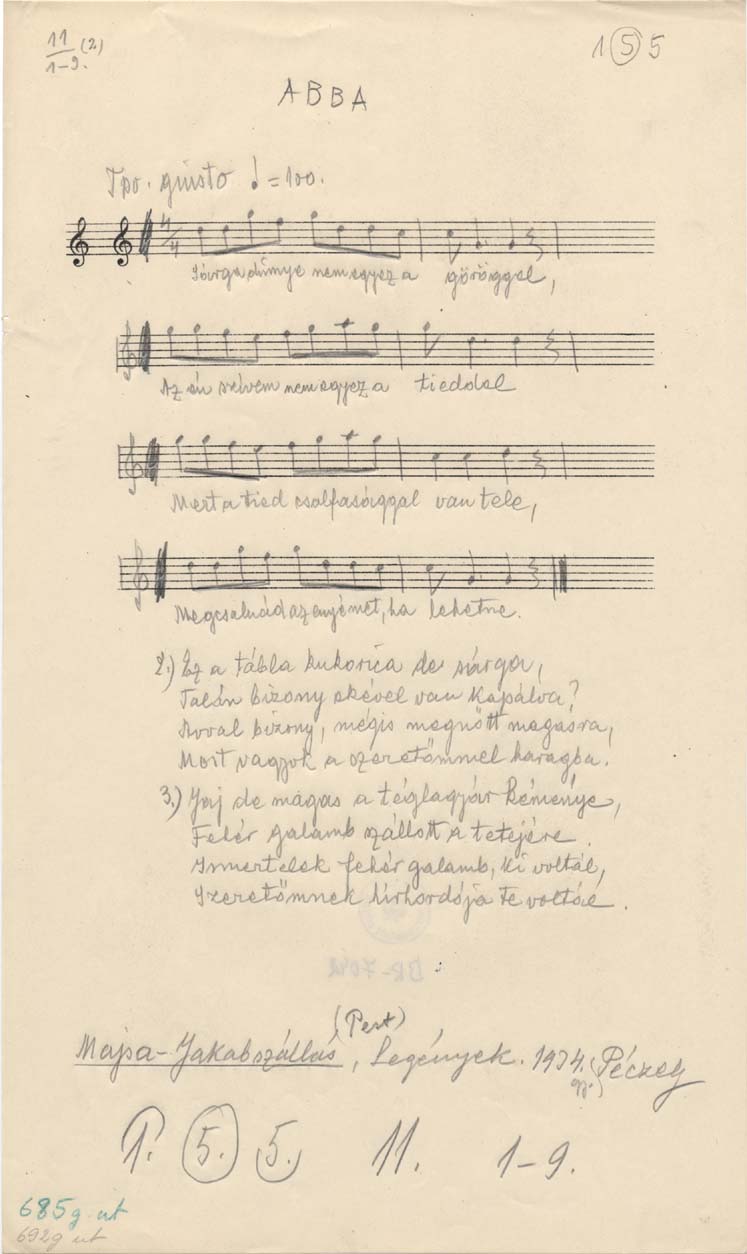 11 (2)
1-9.
1 5 5
ABBA
Tpo. giusto ♩=100.
4/4
Sárga dinnye nem egyez a göröggel,
Az én szívem nem egyez a tieddel
Mert a tied csalfasággal van tele,
Megcsalnád az enyémet, ha lehetne.
2.) Ez a tábla kukorica de sárga,
Talán bizony ekével van kapálva?
Avval bizony, mégis megnőtt magásra,
Mert vagyok a szeretőmmel haragba.
3.) Jaj de magas a téglagyár kéménye,
Fehér galamb szállott a tetejére.
Ismertelek fehér galamb, ki voltál,
Szeretőmnek hírhordója te voltál.
BR-7042
(Pest)
Majsa-Jakabszállás, Legények. 1934. (Péczely
gy.)
1. 5. 5. 11. 1-9.
685g ut
692g ut